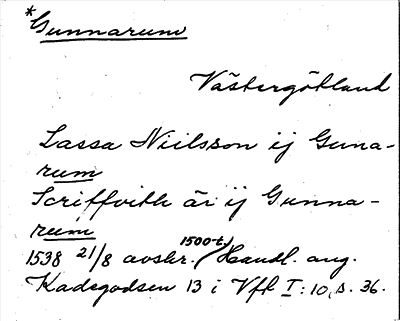 *Gunnarum
Västergötland
Lassa Niilsson ij Guna-
rum
Scriffvith är ij Gunna-
rum
1538 21/8 avskr. (1500-t) Handl. ang.
Kadegodsen 13 i Vfk I:10, s. 36.